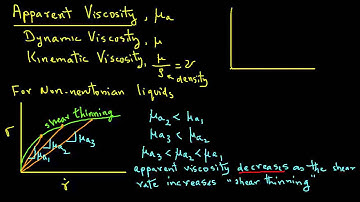 Apparent Viscosity, μa
Dynamic Viscosity, μ
Kinematic Viscosity, μ/ρ = ν
density
For Non-newtonian liquids
shear thinning
σ
μa1
μa2
μa3
γ̇
μa2 < μa1
μa3 < μa2
μa3 < μa2 < μa1
apparent viscosity decreases as the shear
rate increases "shear thinning"